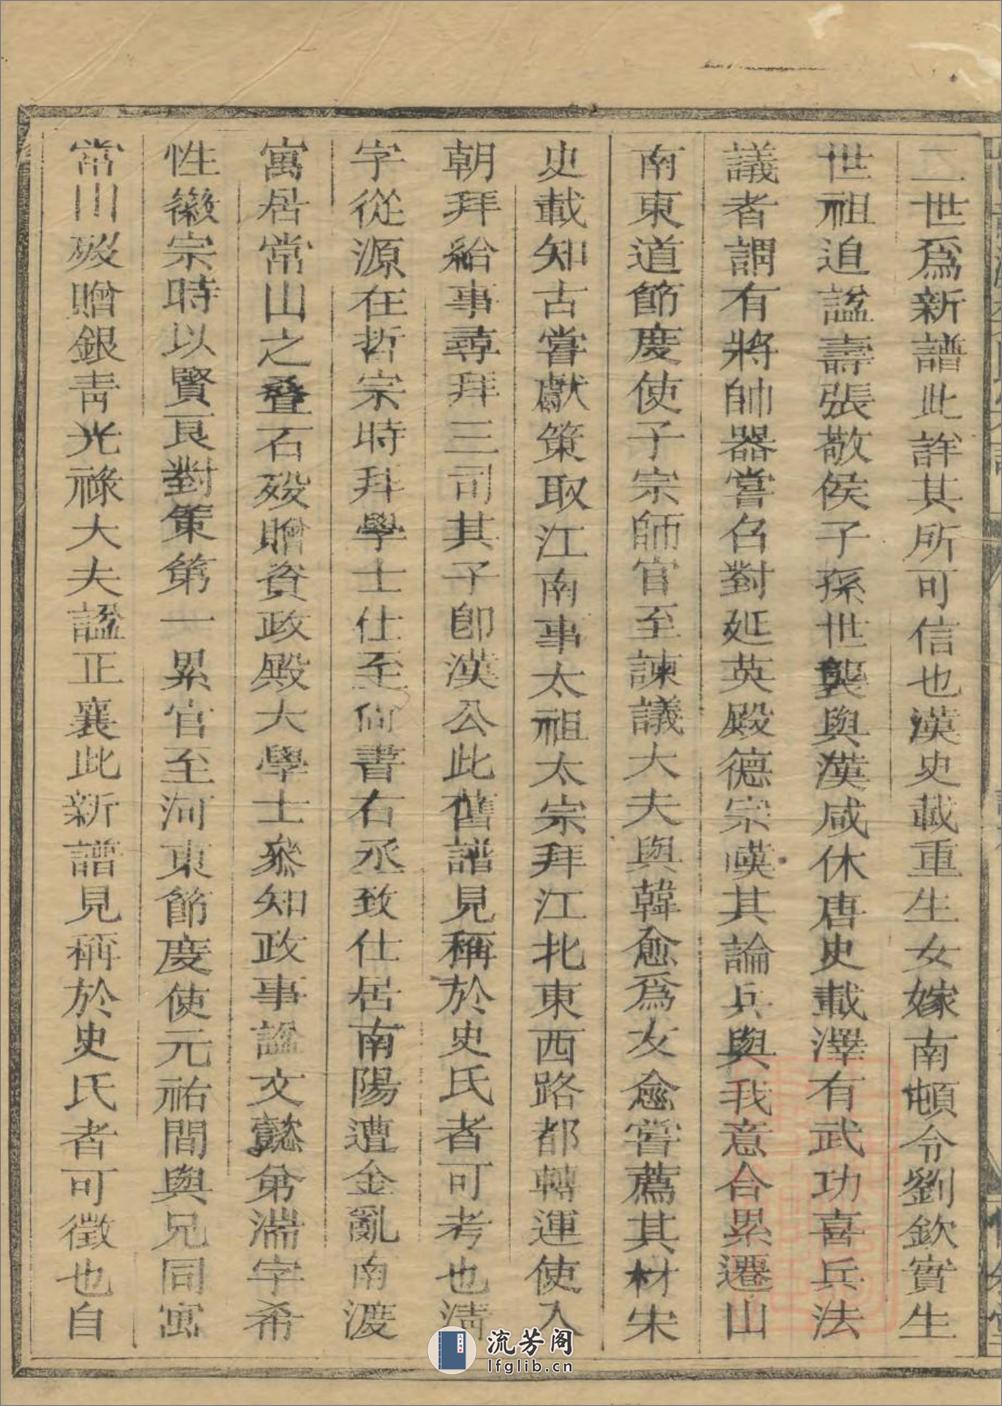 二世為新譜此詳其所可信也漢史載重生女嫁南頓令劉欽實生
世祖追諡壽張敬侯子孫世襲與漢咸休唐史載澤有武功喜兵法
議者謂有將帥器嘗召對延英殿德宗嘆其論兵與我意合累遷山
南東道節度使子宗師官至諫議大夫與韓愈為友愈嘗薦其材宋
史載知古嘗獻策取江南事太祖太宗拜江北東西路都轉運使入
朝拜給事尋拜三司其子即漢公此舊譜見稱於史氏者可考也淸
字從源在哲宗時拜學士仕至尙書右丞致仕居南陽遭金亂南渡
寓居常山之疊石歿贈資政殿大學士叅知政事諡文懿弟湍字希
性徽宗時以賢良對策第一累官至河東節度使元祐間與兄同寓
常川歿贈銀靑光祿大夫諡正襄此新譜見稱於史氏者可徵也自
流芳阁
lfglib.cn